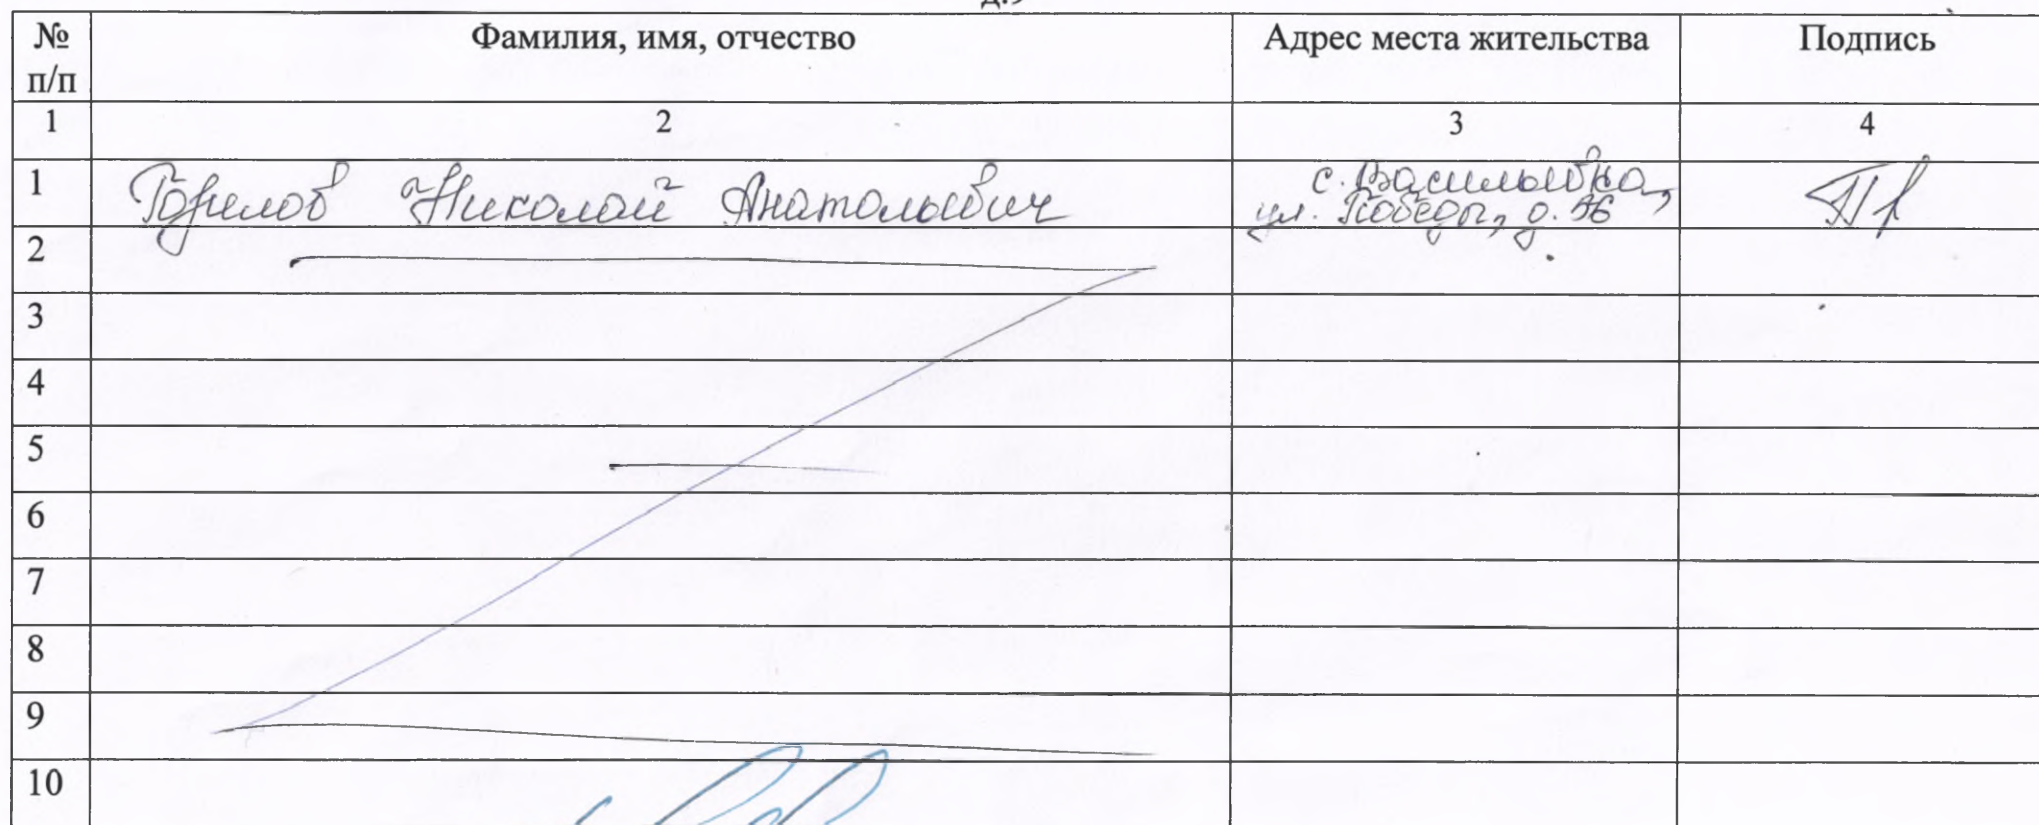 № п/п Фамилия, имя, отчество Адрес места жительства Подпись
1 2 3 4
1 Горилов Николай Анатольевич с. Васильевка,
ул. Победы, д.
2
3
4
5
6
7
8
9
10